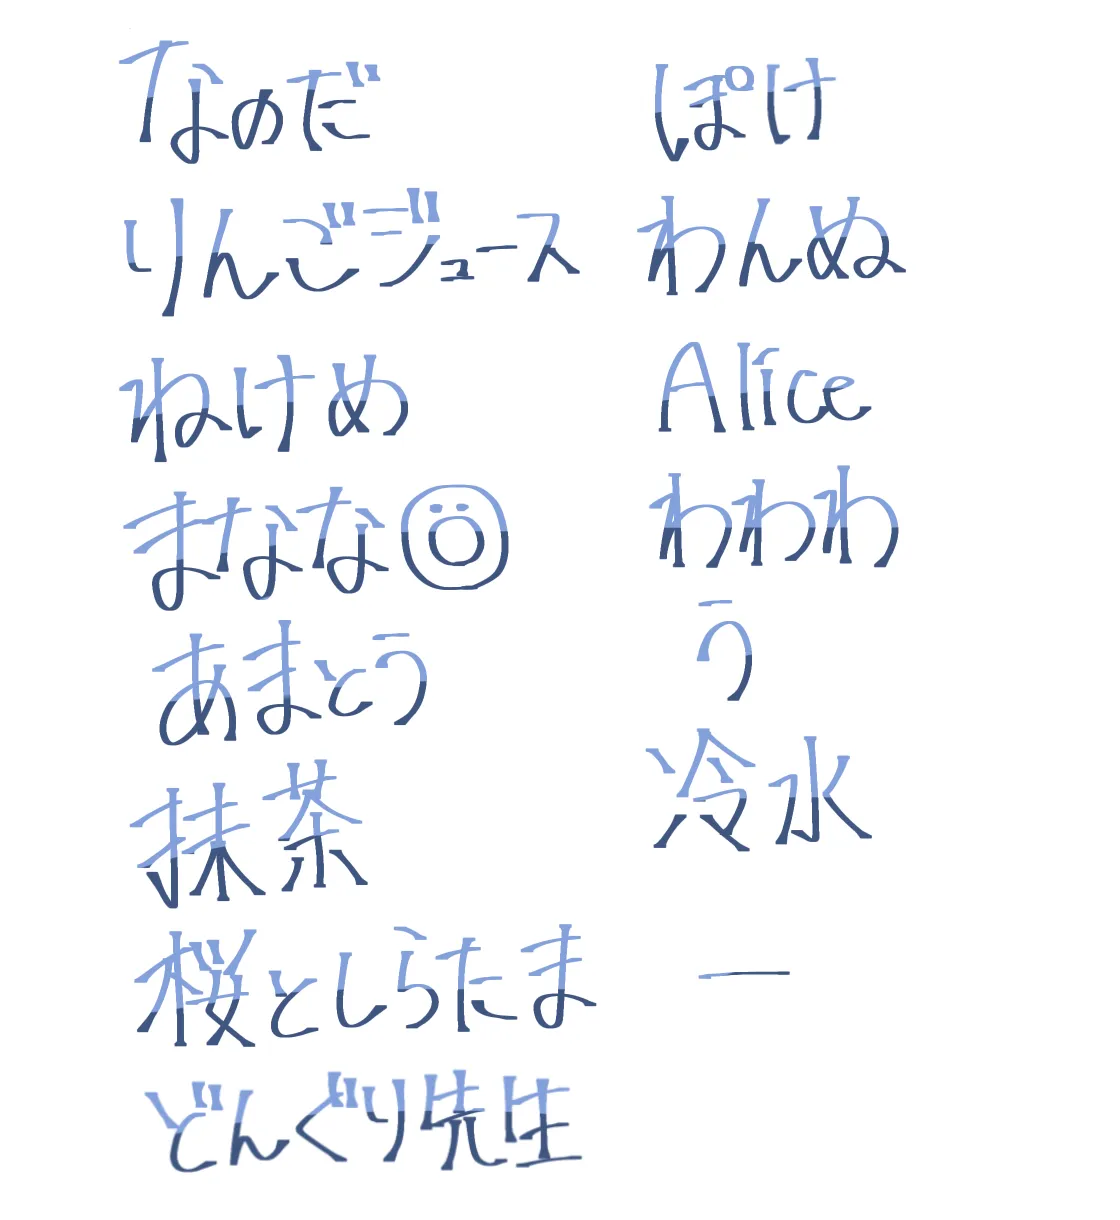 なのだ
りんごジュース
ねけめ
まなな
あまとう
抹茶
桜としらたま
どんぐり先生
ぽけ
わんぬ
Alice
わわわ
う
冷水
ー